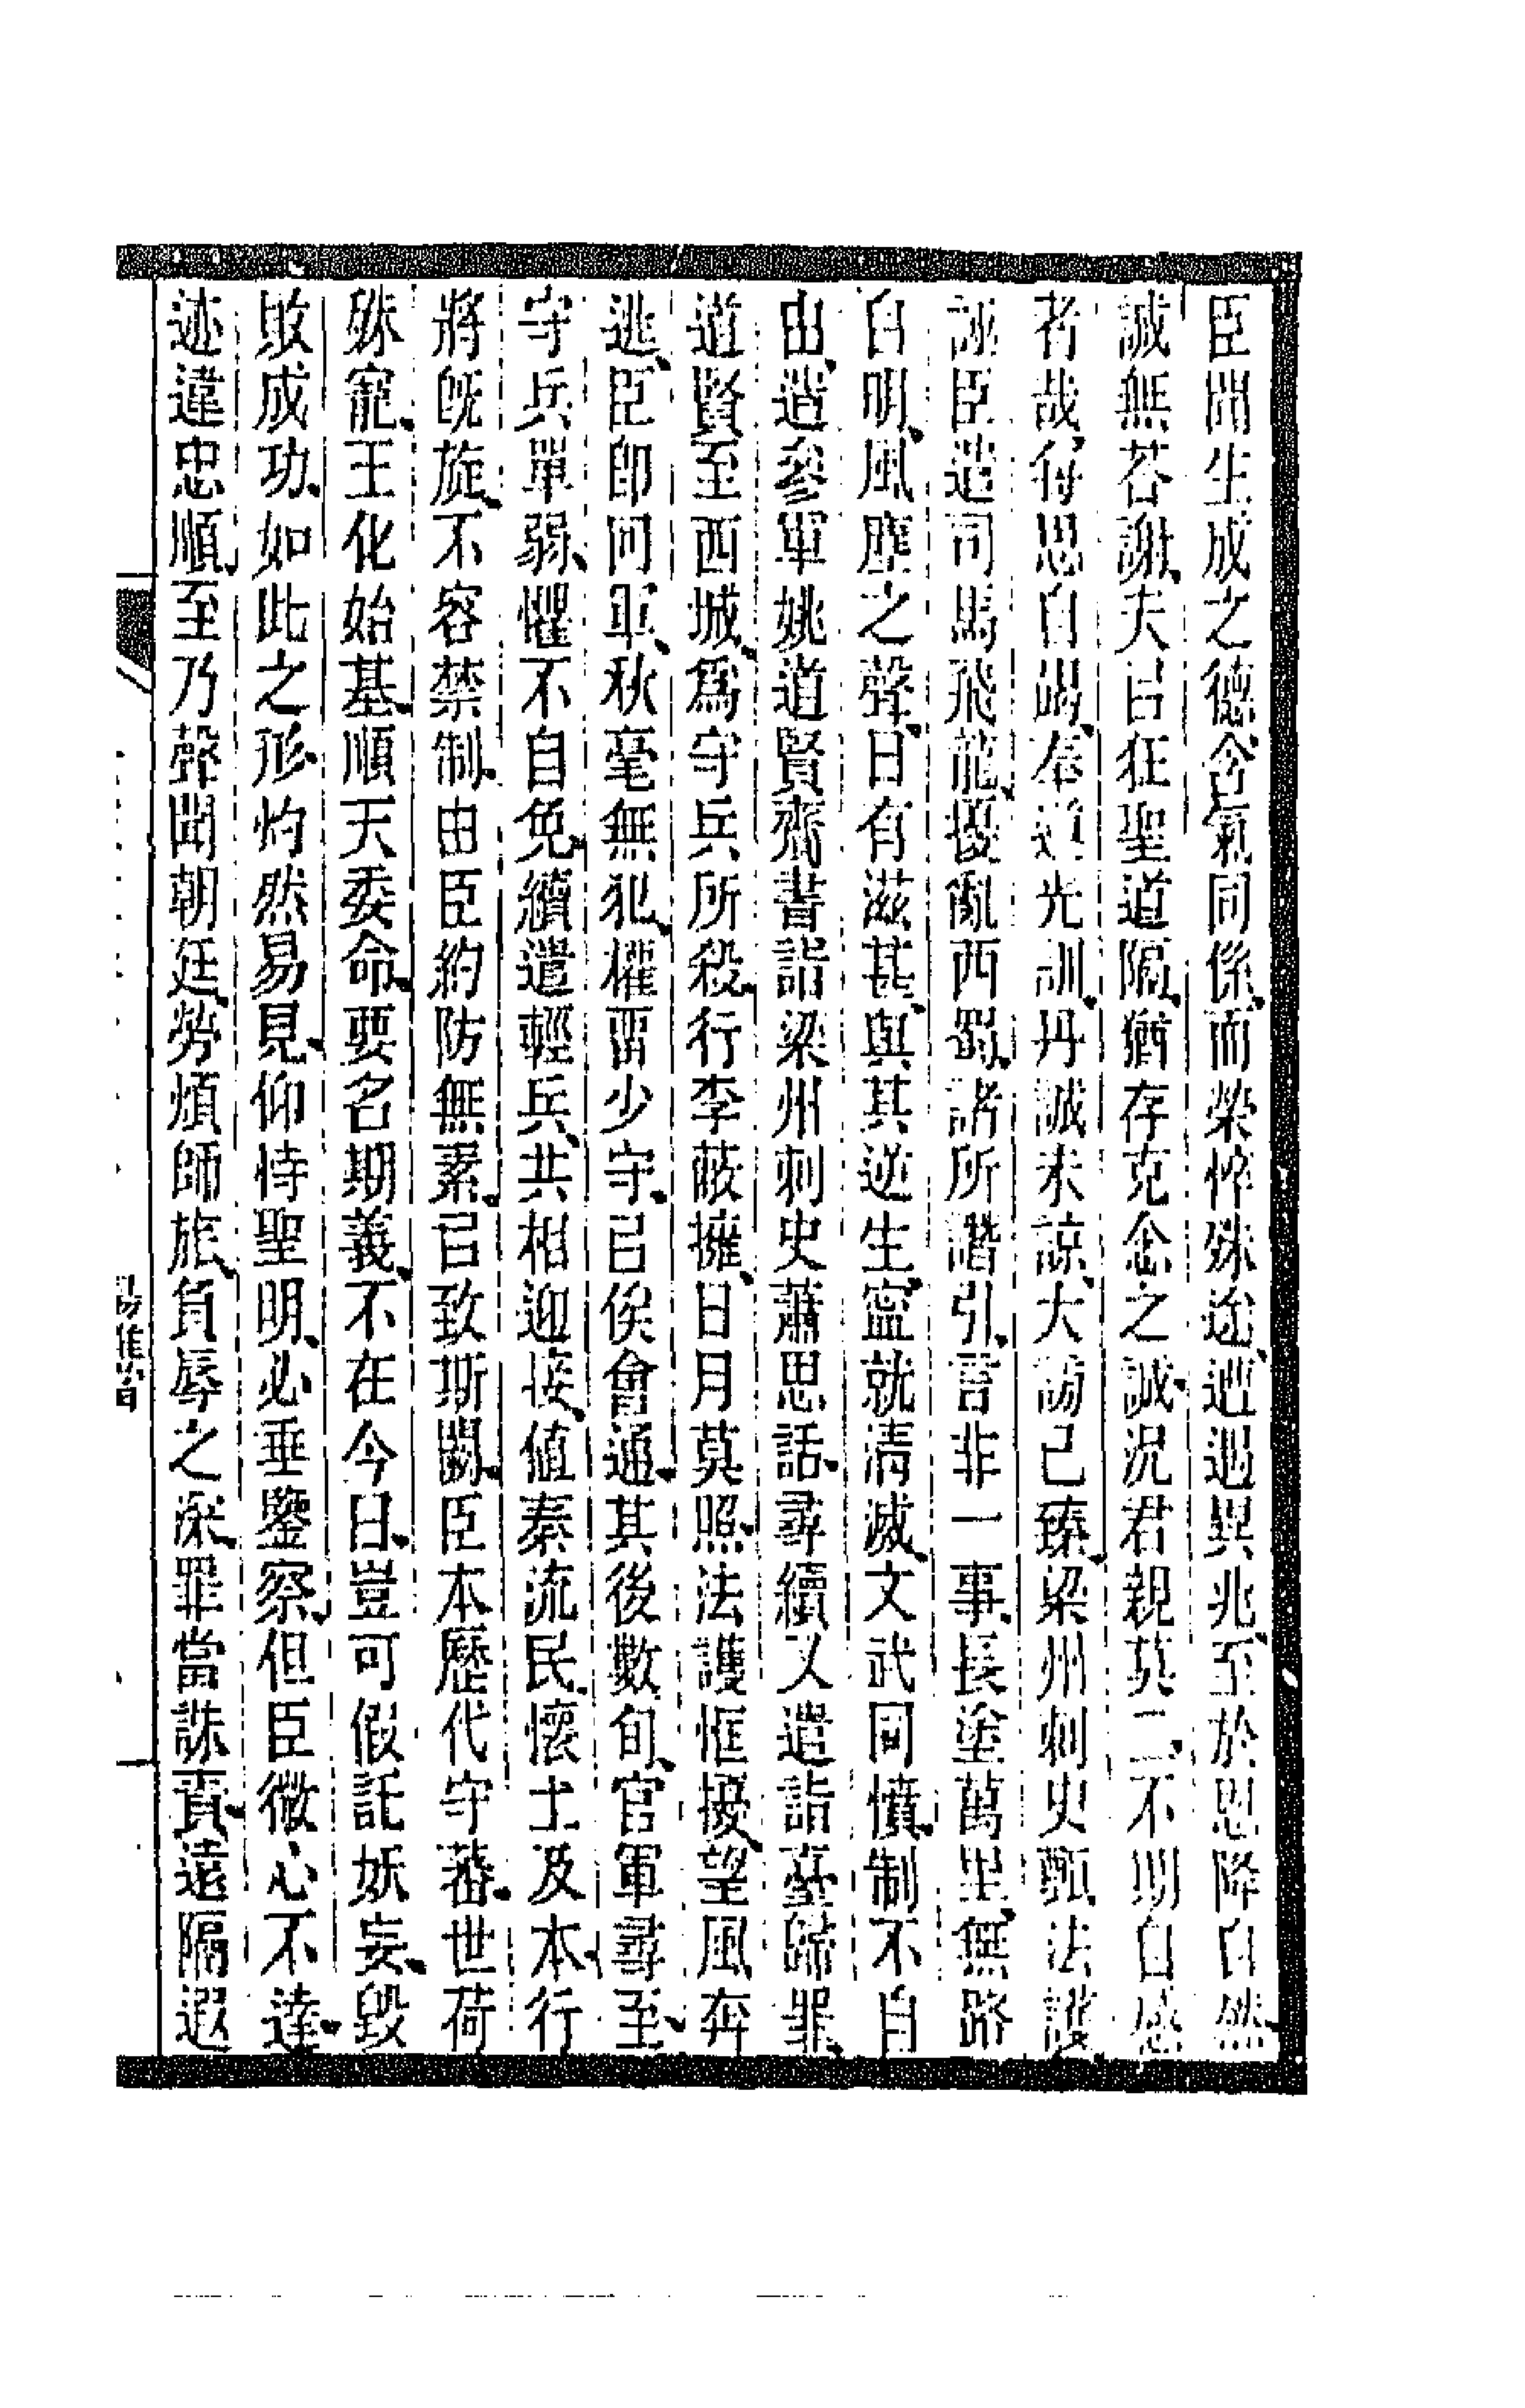 臣聞生成之德含氣同係而榮悴殊途遭遇異兆至於恩降自然
誠無荅謝夫㠯狂聖道隔猶存克念之誠況君親莫二不期自感
者哉得思自竭奉遵光訓丹誠未諒大謗已臻梁州刺史甄法護
誣臣遣司馬飛龍擾亂西蜀諸所譖引言非一事長塗萬里無路
自明風塵之聲日有滋甚與其逆生寍就清滅文武同憤制不自
由遣參軍姚道賢齎書詣梁州刺史蕭思話尋續又遣詣臺歸罪
道賢至西城爲守兵所殺行李蔽擁日月莫照法護恇擾望風奔
逃臣卽回軍秋毫無犯權畱少守㠯俟會通其後數旬官軍尋至
守兵單弱懼不自免續遣輕兵共相迎接値秦流民懷土及本行
將旣旋不容禁制由臣約防無素㠯致斯闕臣本歷代守蕃世荷
殊寵王化始基順天委命要名期義不在今日豈可假託妖妄毀
敗成功如此之形灼然易見仰恃聖明必垂鑒察但臣微心不達
迹違忠順至乃聲聞朝廷勞煩師旅負辱之深罪當誅責遠隔遐